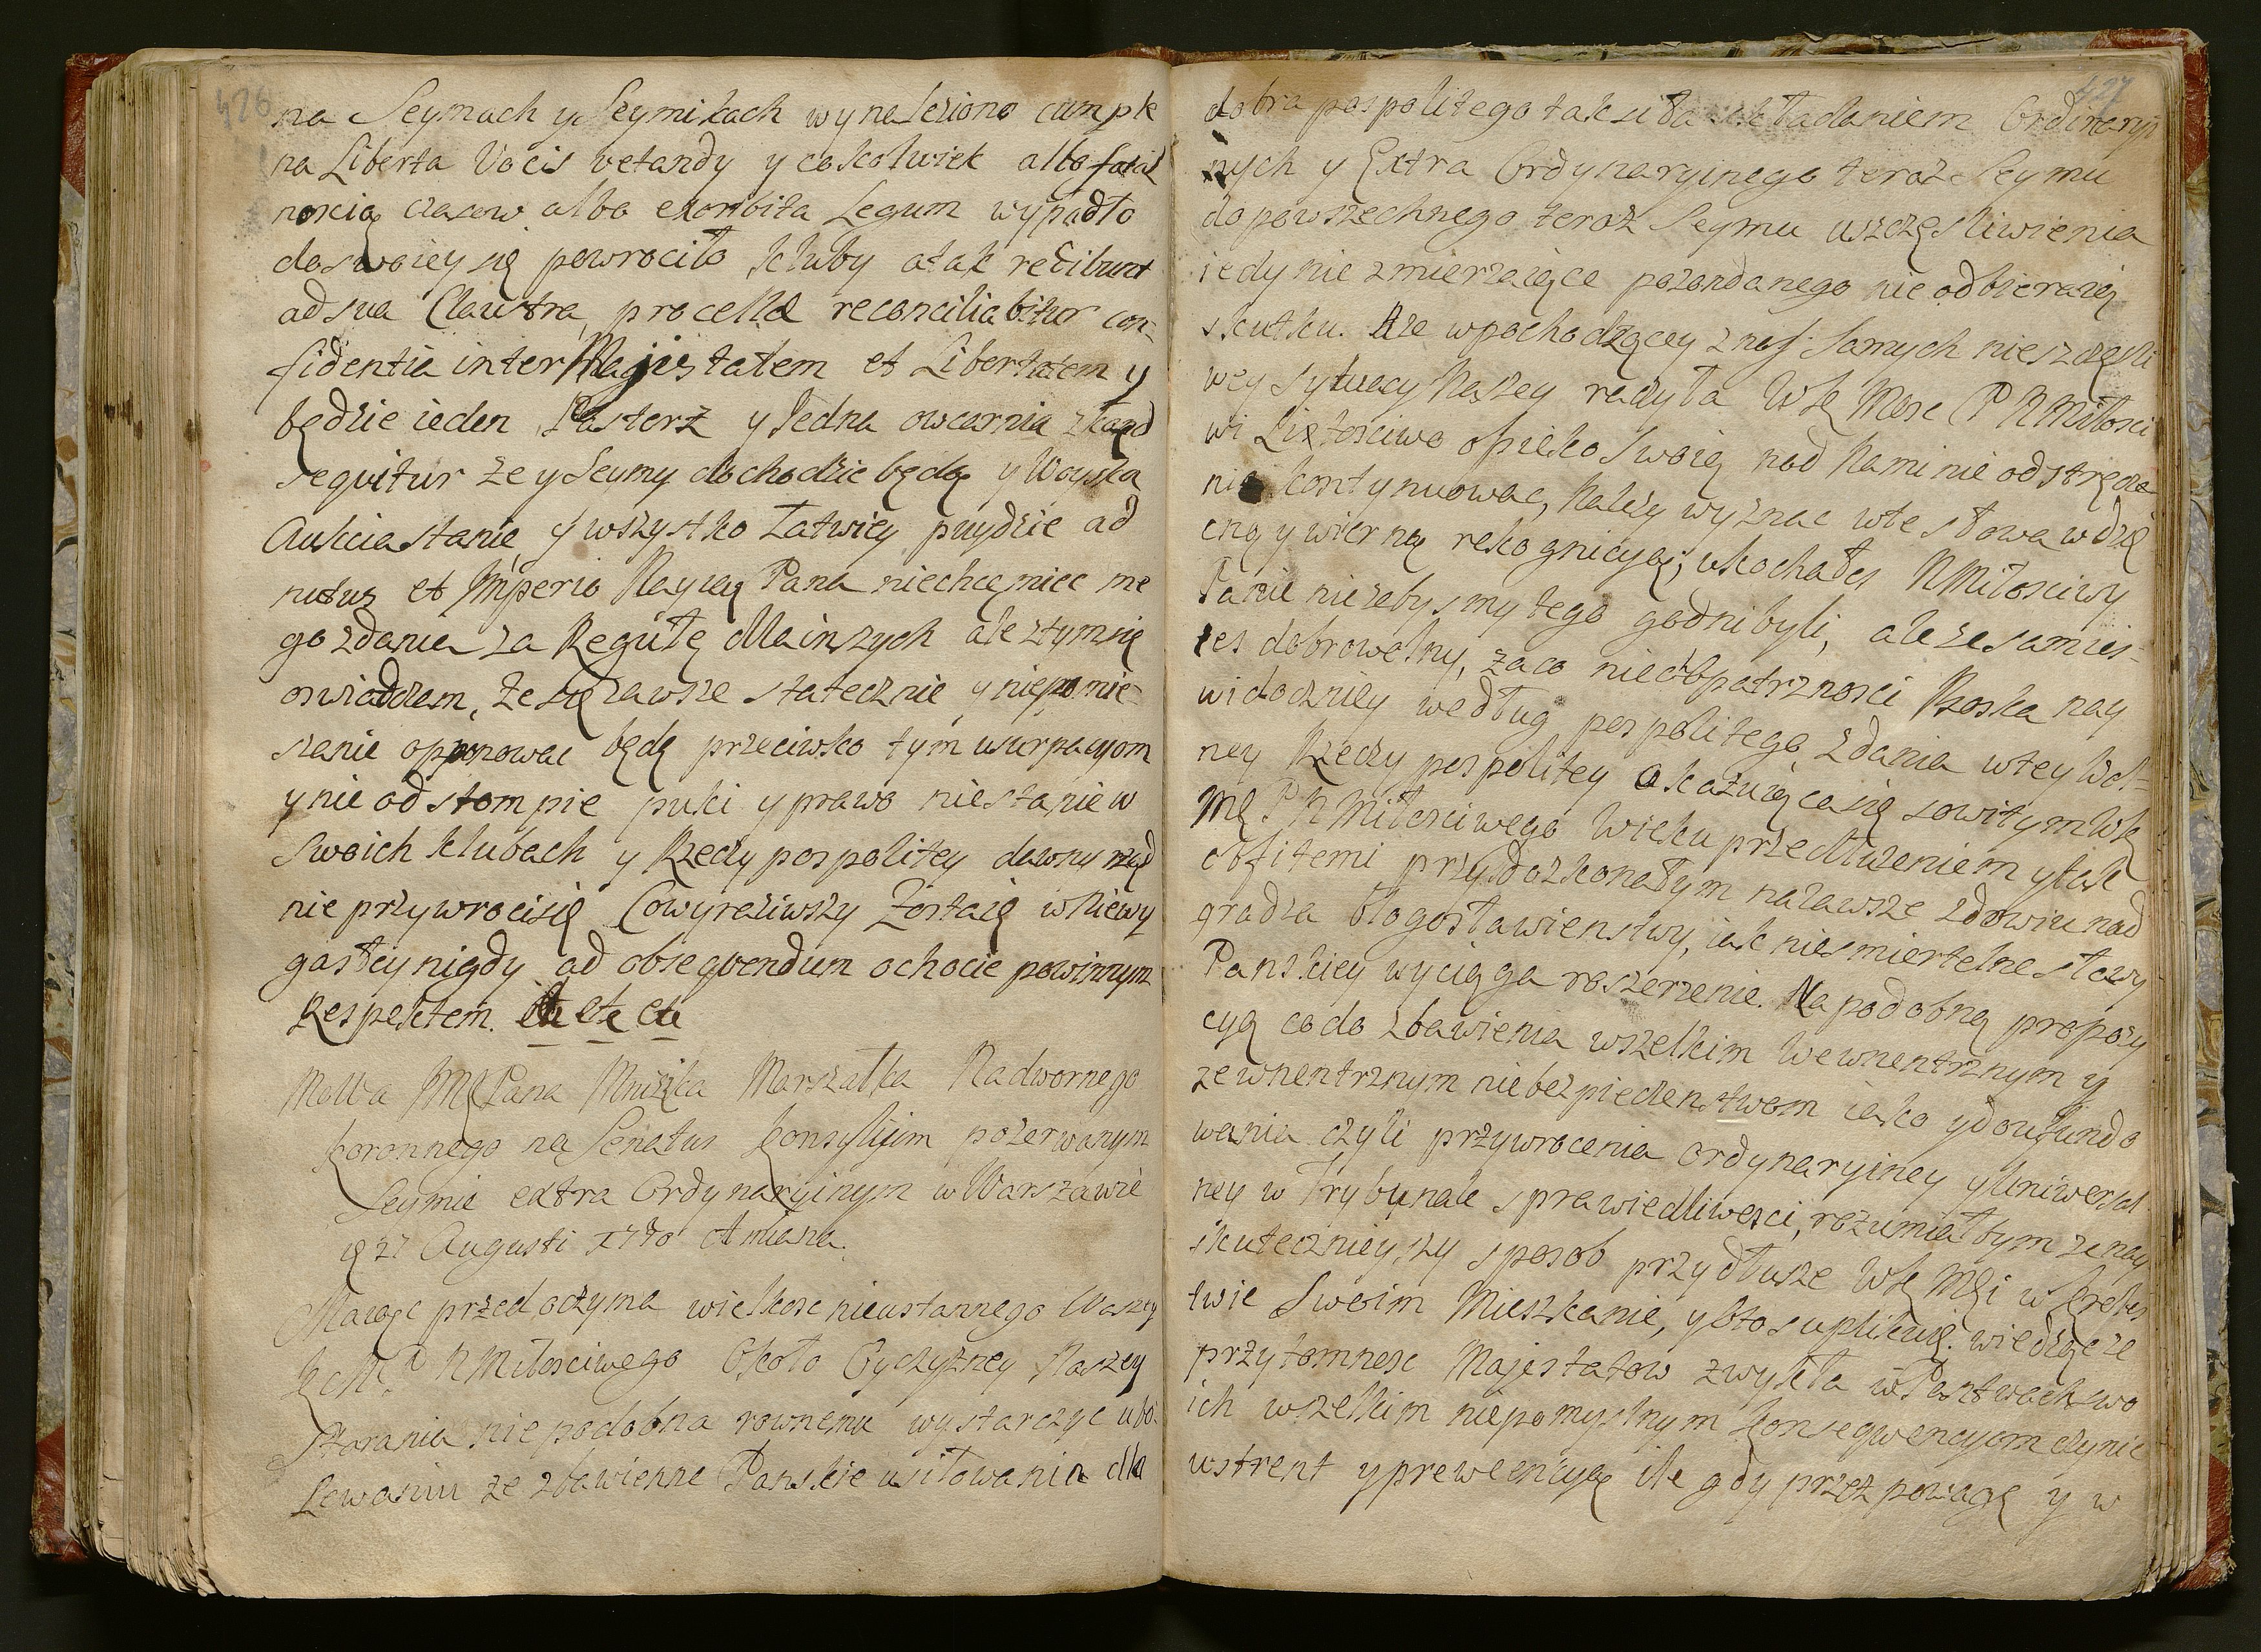 426
na Seymach y Seymikach wynaleziono cum ple
na Liberta Vocis vetandy y cokolwiek albo fatal
noscią czasow albo exorbita Legum wypadło
do swoiey się powrociło kluby a tak redibunt
ad sua Claustra procellæ reconciliabitur con-
fidentia inter Majestatem et Libertatem y
będzie ieden Pasterz y Jedna owczarnia zkąd
sequitur że y Seymy dochodzic będą y Woyska
Aukcia stanie y wszystko łatwiey puydzie ad
nutus et Imperio Nayias Pana niechcę miec me
go zdania za Regułę dla inszych ale z tym się
oswiadczem, że się zawsze statecznie y niepomie-
szanie opponowac będę przeciwko tym usurpacyom
y nie odstompie puki y prawo niestanie w
Swoich klubach y Rzeczypospolitey dawny rząd
nie przywroci się Co wyraziwszy Zostaię w niewy
gasłey nigdy ad obsequendum ochocie powinnym
Respektem. etc etc etc
Mowa JMę Pana Mniszka Marszałka Nadwornego
koronnego na Senatus Konsylium po zerwanym
Seymie extra Ordynaryinym w Warszawie
27 Augusti 1730 Amiana.
Maiąc przed oczyma wielkosc nieustannego Waszey
K Mci P N Miłosciwego Około Oyczyzney Naszey
Starania niepodobna rownemu wystarczyc ubo-
lewaniu ze zbawienne Panskie usiłowania dla
427
dobra pospolitego tak siła składaniem Ordinaryi
nych y Extra Ordynaryinego teraz Seymu
do powszechnego teraz Seymu uszczęsliwienia
iedynie zmierzaiące pożondanego nie odbieraią
skutku. Ale w pochodzącey z nas samych nieszczęsli
wey sytuacy Naszey raczyła WK Mosc P N Miłosci
wi Litosciwo opieko Swoię nad Nami nie odstręcza
nie kontynuowac, Należy wyznac w te słowa wdzię
czną y wierną rekognicyą; ukochałes N Miłosciwy
Panie nie żebysmy tego godni byli, ale że sam ies-
tes dobrowolny, za co niech Opatrznosci Boska nay
widoczniey według pospolitego zdania w tey Wol-
ney Rzeczypospolitey okazuiąca się sowitym WK
Mę P N Miłosciwego Wieku przedłużeniem y tak
obfitemi przy doskonałym na zawsze zdrowiu nad
gradza błogosławienstwy, iak niesmiertelne sławy
Panskiey wyciąga roszerzenie. Na podobną propozy
cyą co do zbawienia wszelkim Wewnentrznym y
zewnentrznym niebezpieczenstwom iako y do ufundo
wania czyli przywrocenia ordynaryiney y Uniwersal
ney w Trybunale sprawiedliwosci, rozumiałbym ze nay
skutecznieyszy sposob przydłusze WK Mci w Kroles
twie Swoim Mieszkanie, y o to supplikuię. wiedząc że
przytomnosc Majestatow zwykła w Panstwach swo
ich wszelkim niepomyslnym konsequencyom czynic
wstrent y prewencyą ile gdy przez powagę y w